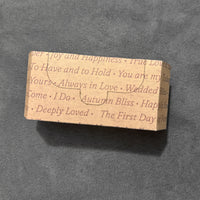 Joy and Happiness · True Lo
To Have and to Hold · You are my
Yours · Always in Love · Wedded
Come · I Do · Autumn Bliss · Happi
· Deeply Loved · The First Day